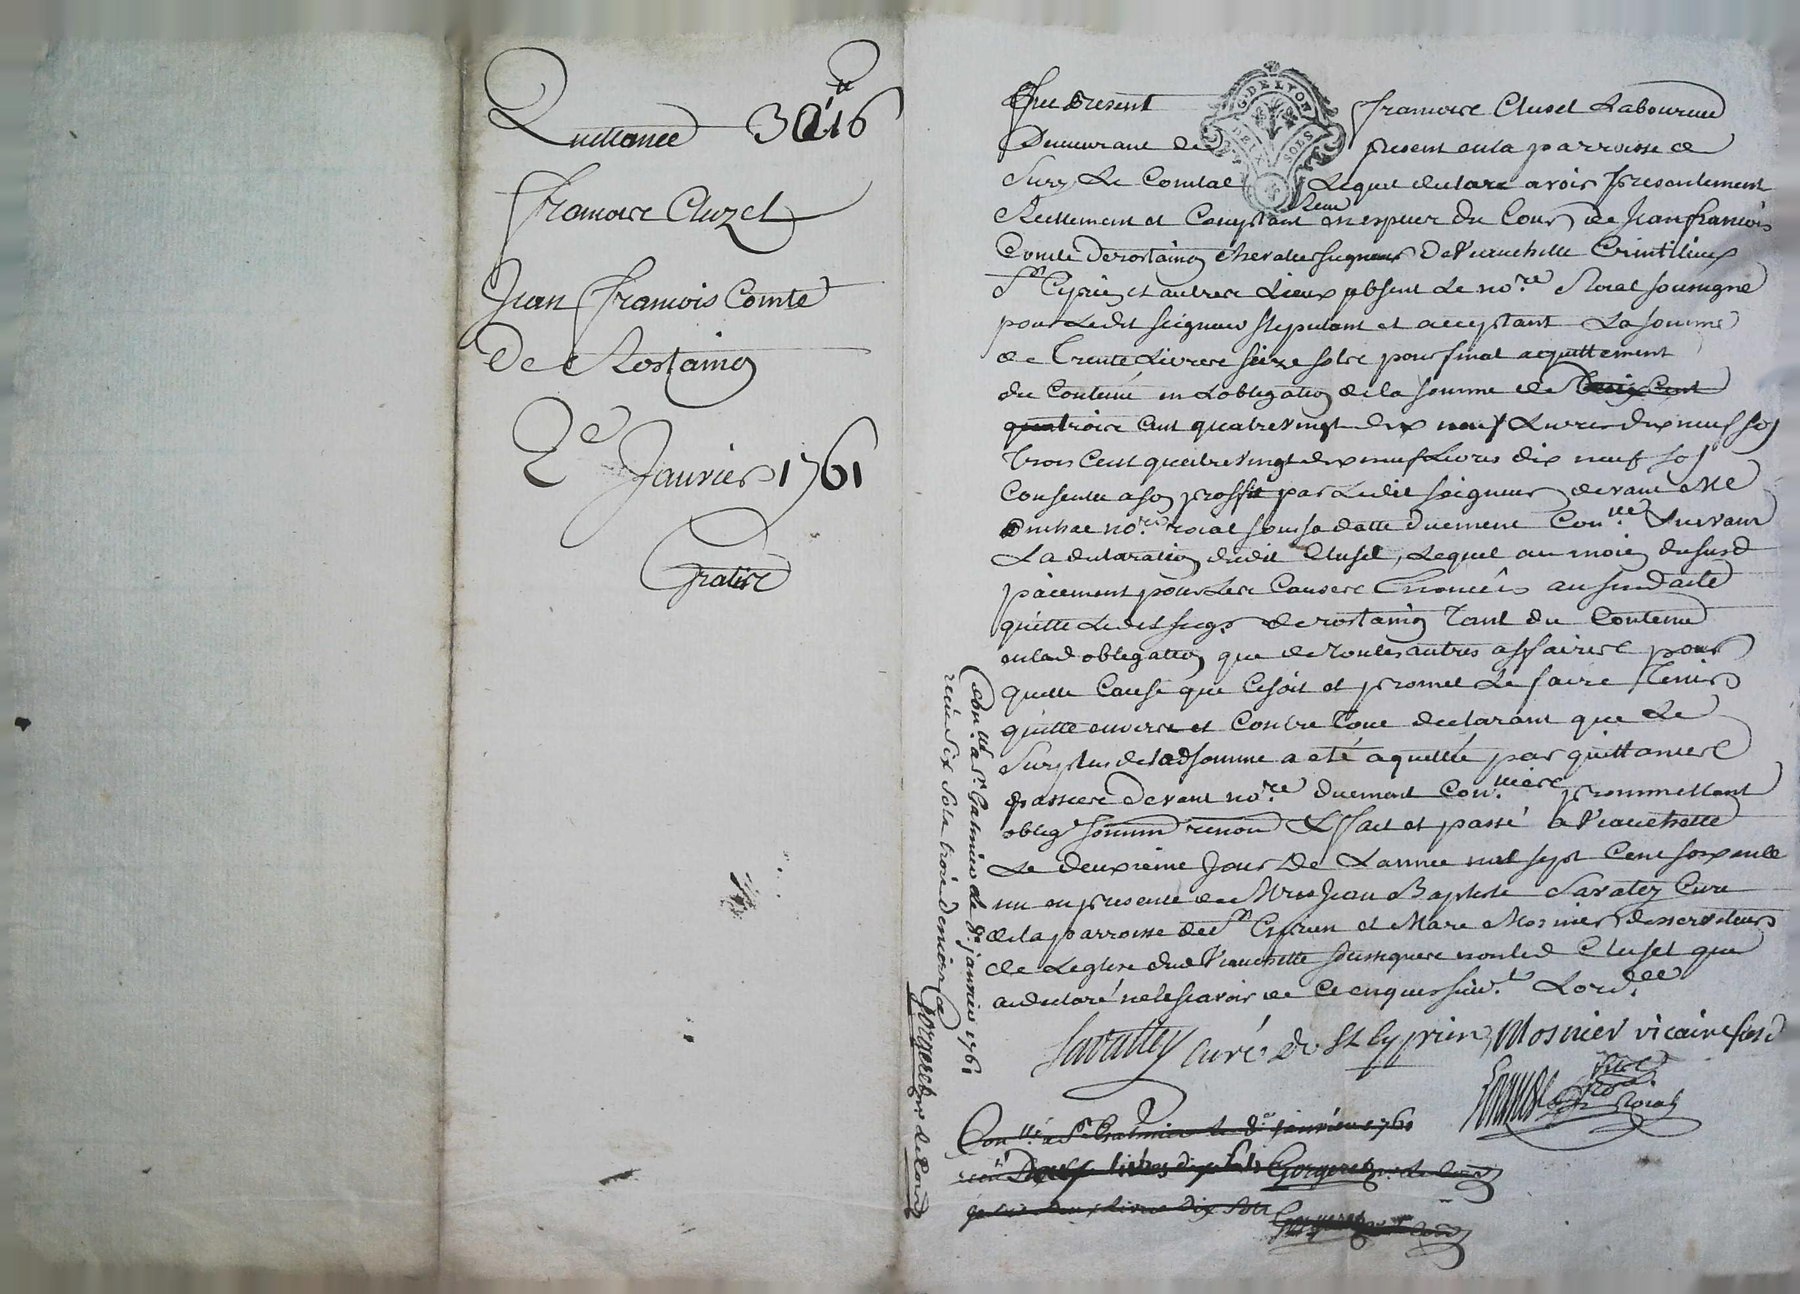 Quittance 30ᵗᵗ 16
francoise Cluzel
Jean francois Comte
De Rostaing
2e Janvier 1761
Gratise
G. DE LYON
DEUX SOLS
fut Present francoise Clusel Laboureur
Demeurant de present en la parroisse de
Sury Le Comtal Lequel declare avoir presentement
Reellement et Comptant Receu en espece du Cours de Jean francois
Comte Derostaing chevalier seigneur De Vauchette Crintilieux
St Cyprien et autrese Lieux absent Le nore Roial soussigné
pour Ledit seigneur stipulant et acceptant La somme
de trente Livrese seize solse pour final aquittement
du Contenu en Lobligation de la somme de trois Cent
quatroise cent quatrevingt dix neuf Livres dix neuf sol
trois Cent quatre vingt dix neuf Livres dix neuf sol
Consentie a son proffit par Ledit seigneur devant Me
nore roial sous sa datte duement Conllée suivant
La declaration dudit Clusel, Lequel au moien du susd
paiement pour Lese Causese Enoncées au susd acte
quitte Ledit seigr derostaing tant du Contenu
en lad obligation que de toutes autres affairese pour
quelle Cause que Ce soit et promet Le faire tenir
quitte enverse et Contre tous declarant que Le
surplus de lad somme a eté aquittée par quittancese
passeese devant nore duement Con promettant
oblig renon &c fait et passé a Vauchette
Le deuxieme Jour De Lannee mil sept Cent soixante
un en presence de Mre Jean Baptiste Savatey Curé
de la parroisse de St Cyprien et Marc Mosnier desserviteur
de Leglise dud Vauchette soussignese non led Clusel que
a declaré ne le scavoir de Ce enquis suivt Lordce
Savattey curé de St Cyprien Mosnier vicaire
Roial
Conllé a St Galmier le 8e janvier 1761
receu six sols trois deniers Gorgeret
Conllé a St Galmier le 8e janvier 1761
receu Deux livres dix sols Gorgeret